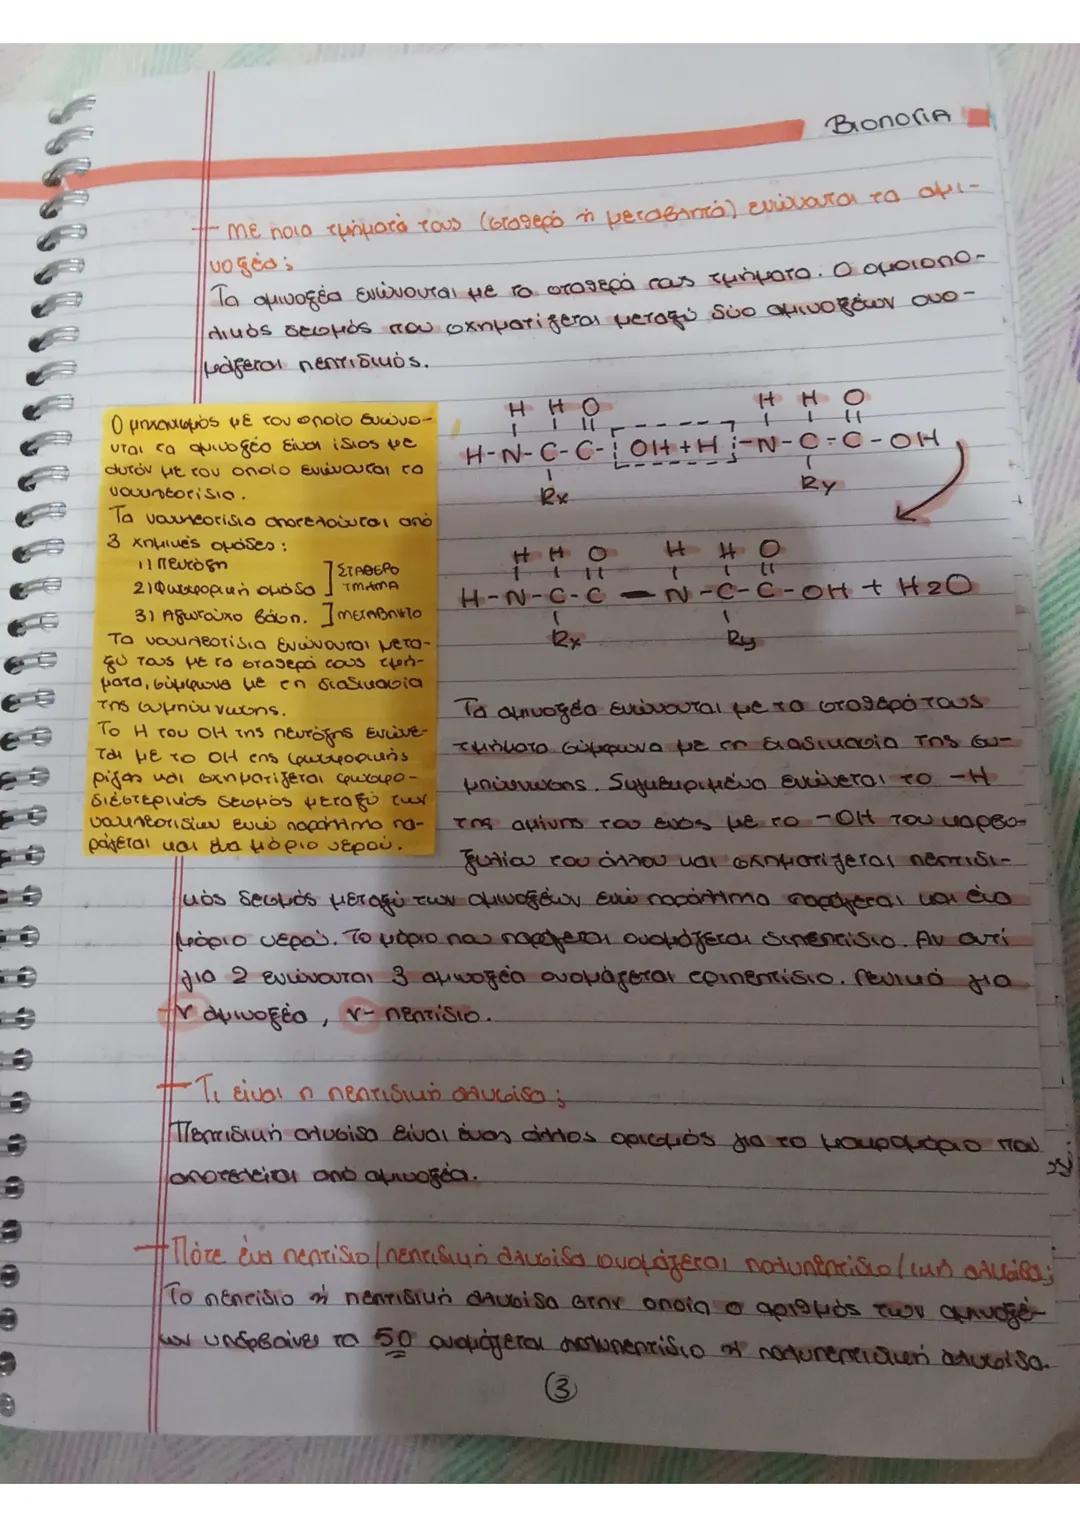 Βιολογία
- Με ποια τμήματά τους (σταθερά ή μεταβλητά) ενώνονται τα αμι-
νοξέα;
Τα αμινοξέα ενώνονται με τα σταθερά τους τμήματα. Ο ομοιοπο-
λικός δεσμός που σχηματίζεται μεταξύ δύο αμινοξέων ονο-
μάζεται πεπτιδικός.
Ο μηχανισμός με τον οποίο ενώνο-
νται τα αμινοξέα είναι ίδιος με
αυτόν με τον οποίο ενώνονται τα
νουκλεοτίδια.
Τα νουκλεοτίδια αποτελούνται από
3 χημικές ομάδες:
1) Πεντόζη
2) Φωσφορική ομάδα ] ΣΤΑΘΕΡΟ ΤΜΗΜΑ
3) Αζωτούχο βάση. ] ΜΕΤΑΒΛΗΤΟ
Τα νουκλεοτίδια ενώνονται μετα-
ξύ τους με τα σταθερά τους τμή-
ματα, σύμφωνα με τη διαδικασία
της συμπύκνωσης.
Το Η του ΟΗ της πεντόζης ενώνε-
ται με το ΟΗ της φωσφορικής
ρίζας και σχηματίζεται φωσφο-
διεστερικός δεσμός μεταξύ των
νουκλεοτιδίων ενώ παράλληλα πα-
ράγεται και ένα μόριο νερού.
H H O H H O
H-N-C-C- OH + H -N-C-C-OH
Rx Ry
H H O H H O
H-N-C-C — N-C-C-OH + H2O
Rx Ry
Τα αμινοξέα ενώνονται με τα σταθερά τους
τμήματα σύμφωνα με τη διαδικασία της συ-
μπύκνωσης. Συγκεκριμένα ενώνεται το -Η
της αμίνης του ενός με το -ΟΗ του καρβο-
ξυλίου του άλλου και σχηματίζεται πεπτιδι-
κός δεσμός μεταξύ των αμινοξέων ενώ παράλληλα παράγεται και ένα
μόριο νερού. Το μόριο που παράγεται ονομάζεται διπεπτίδιο. Αν αντί
για 2 ενώνονται 3 αμινοξέα ονομάζεται τριπεπτίδιο. Γενικά για
ν αμινοξέα, ν- πεπτίδιο.
- Τι είναι η πεπτιδική αλυσίδα;
Πεπτιδική αλυσίδα είναι ένας άλλος ορισμός για το μακρομόριο που
αποτελείται από αμινοξέα.
- Πότε ένα πεπτίδιο/πεπτιδική αλυσίδα ονομάζεται πολυπεπτίδιο/ική αλυσίδα;
Το πεπτίδιο ή πεπτιδική αλυσίδα στην οποία ο αριθμός των αμινοξέ-
ων υπερβαίνει τα 50 ονομάζεται πολυπεπτίδιο ή πολυπεπτιδική αλυσίδα.
3